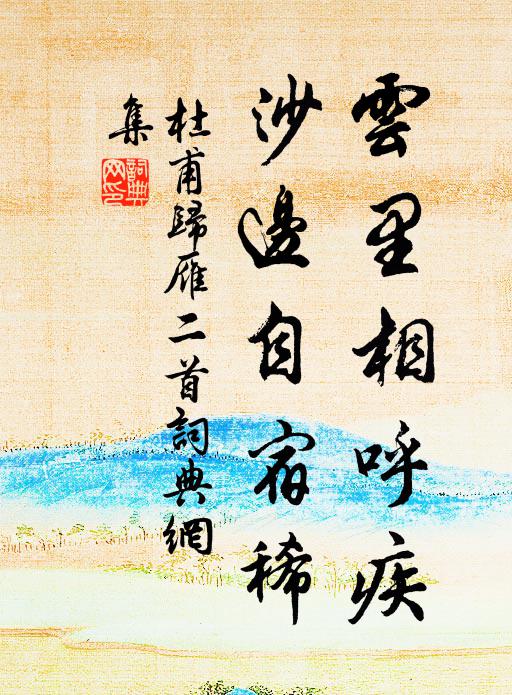 雲里相呼疾
沙邊自宿稀
杜甫歸雁二首詞典網
集
詞典網印